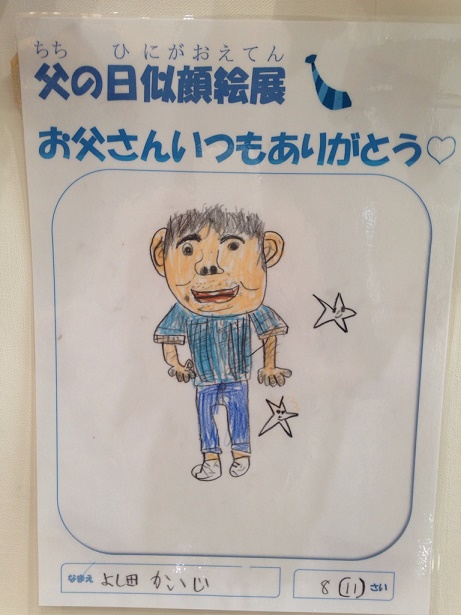 ちち ひにがおえてん
父の日似顔絵展
お父さんいつもありがとう♡
なまえ よし田 かいじ
8 (11) さい